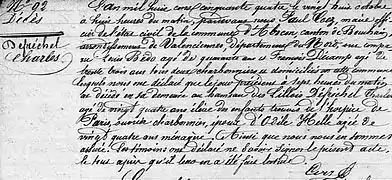 N° 92
Décès
Defrichel
Charles
L'an mil huit cent cinquante quatre le vingt huit octobre
à huit heures du matin, pardevant nous Paul maire offi-
cier de l'état civil de la commune d'Abscon, canton de Bouchain,
arrondissement de Valenciennes, département du Nord, ont compa-
ru Louis Bédo agé de quarante ans et François Descamp agé de
trente trois ans tous deux charbonniers et domiciliés en cette commune
lesquels nous ont déclaré que heures du matin
est décédé en sa demeure au hameau des Defrichel Charles
agé de vingt quatre ans élève des enfants trouvés de l'hospice de
Paris, ouvrier charbonnier, époux d'Odile Helle agée de
vingt quatre ans ménagère. Ainsi que nous nous en sommes
assuré. Les témoins ont déclaré ne savoir signer le présent acte,
le tout après qu'il leur en a été fait lecture.